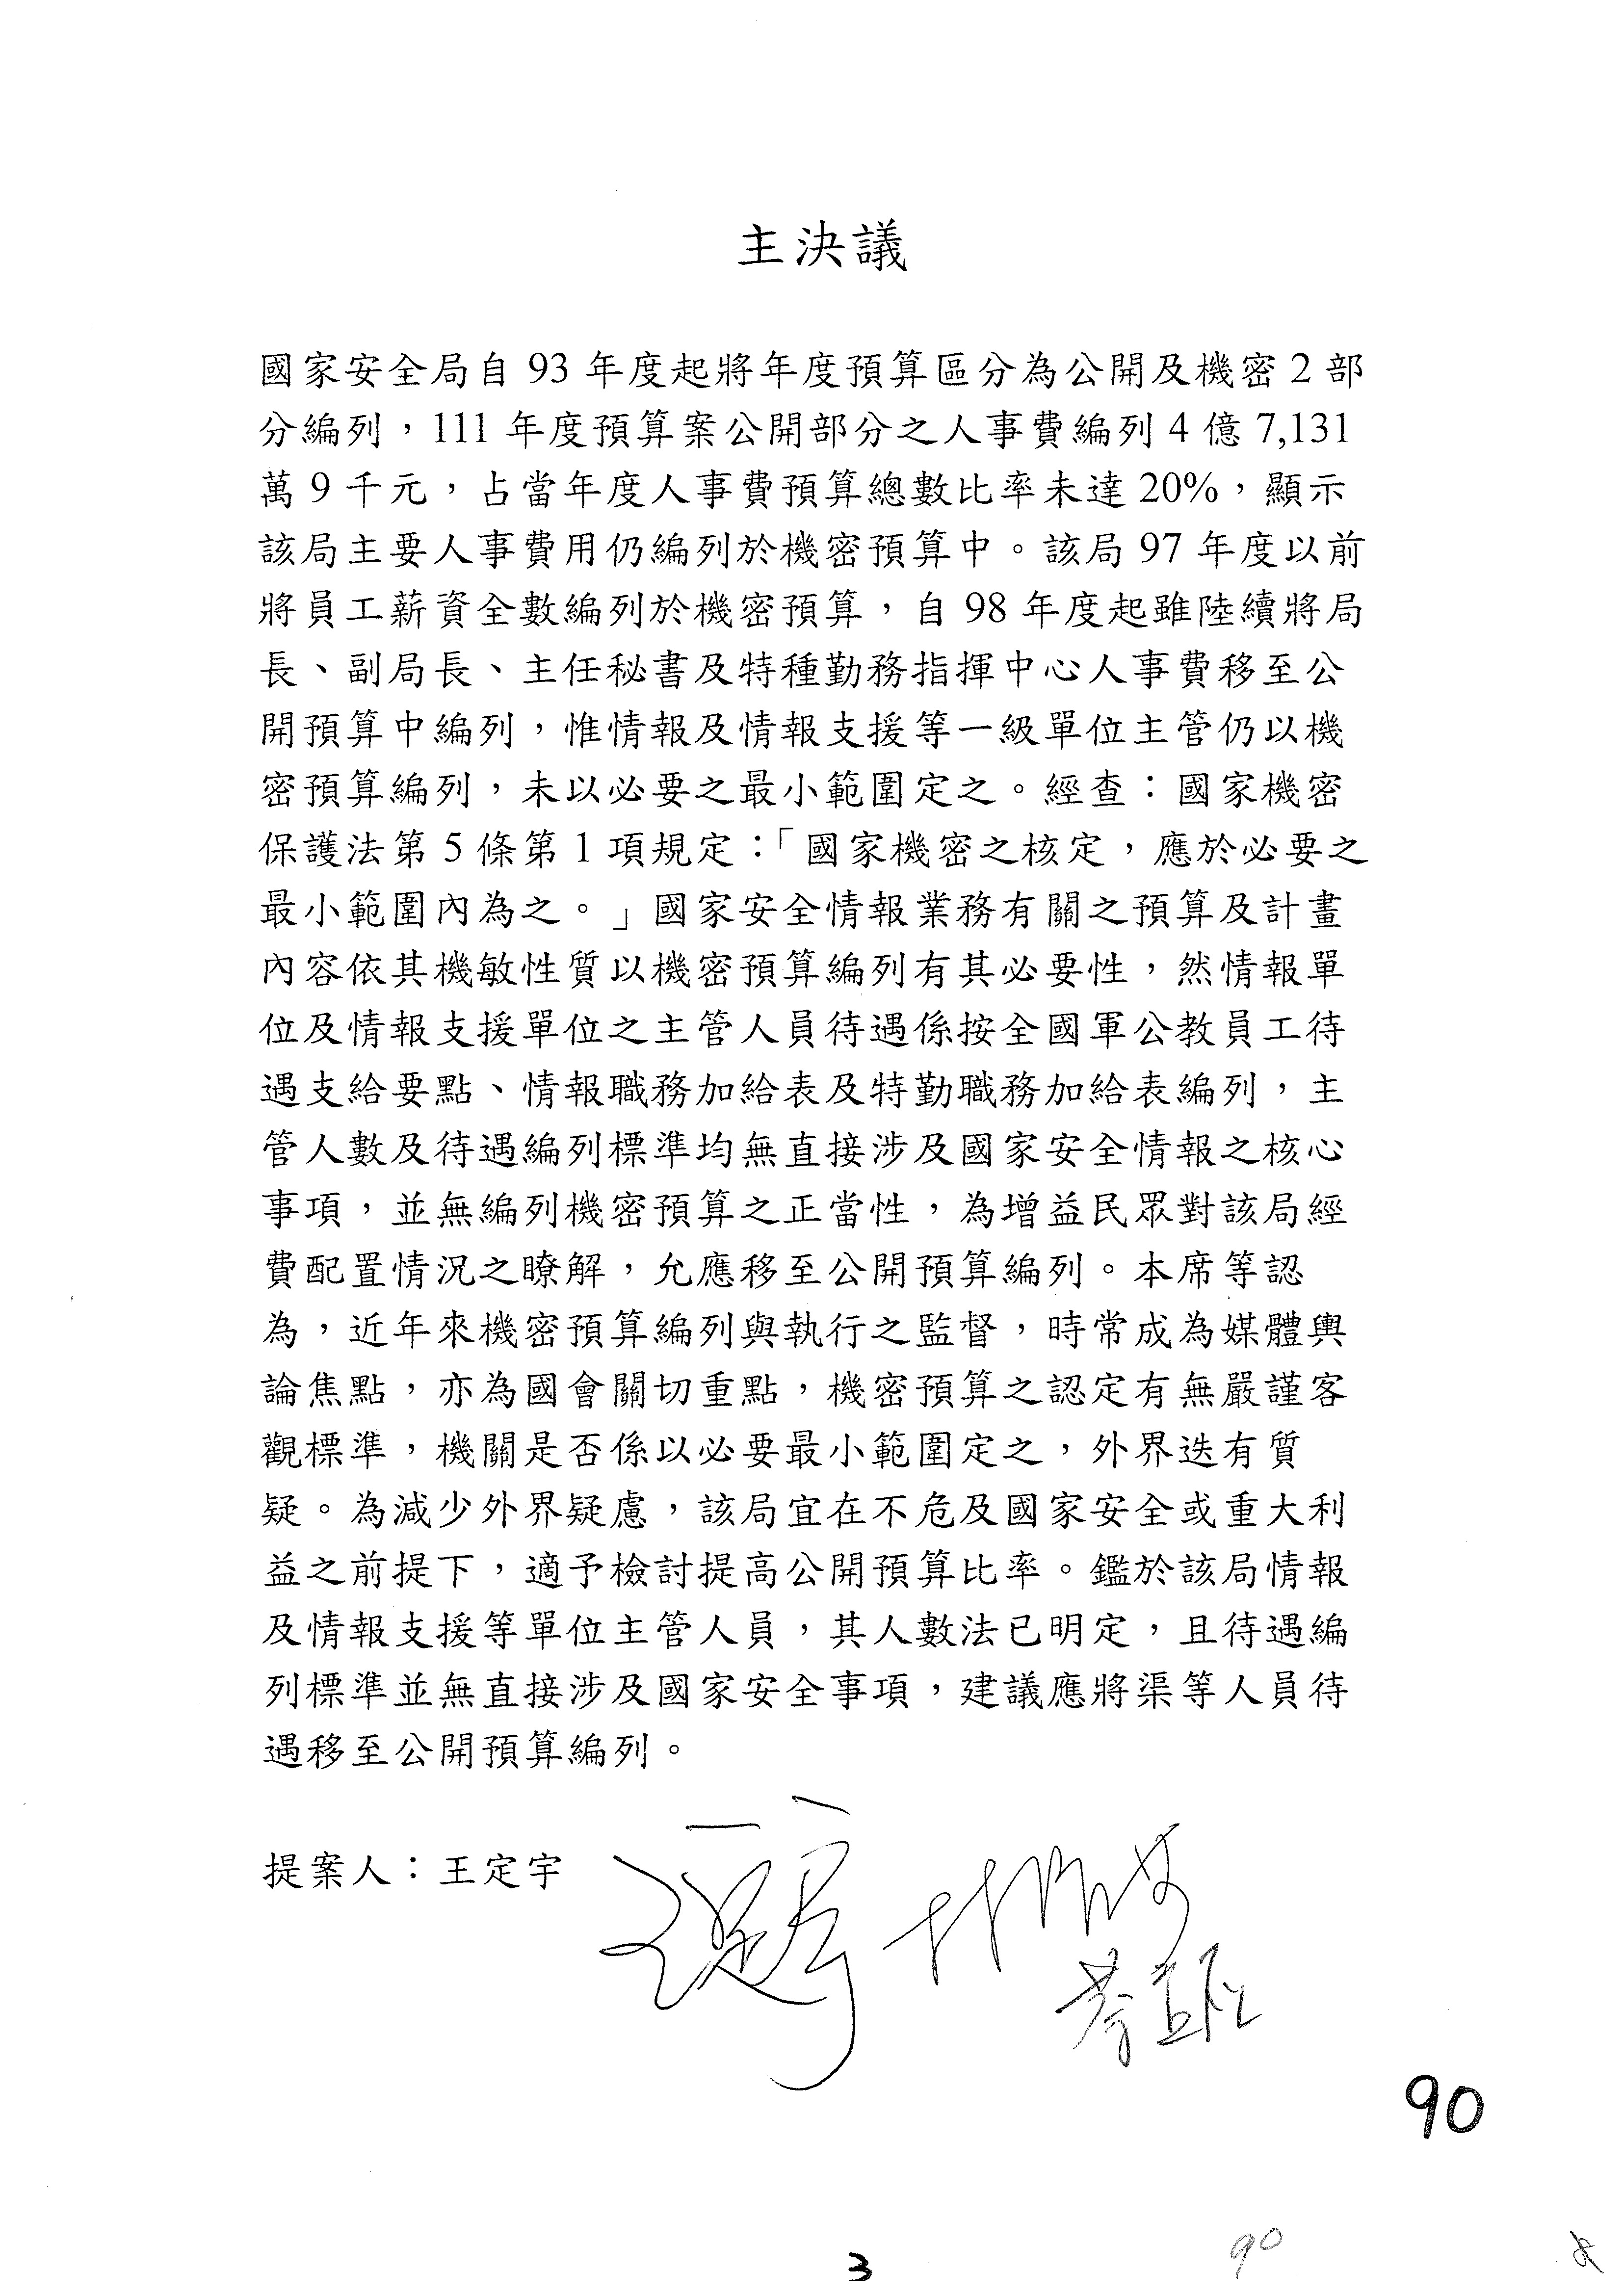 主決議
國家安全局自 93 年度起將年度預算區分為公開及機密 2 部
分編列，111 年度預算案公開部分之人事費編列 4 億 7,131
萬 9 千元，占當年度人事費預算總數比率未達 20%，顯示
該局主要人事費用仍編列於機密預算中。該局 97 年度以前
將員工薪資全數編列於機密預算，自 98 年度起雖陸續將局
長、副局長、主任秘書及特種勤務指揮中心人事費移至公
開預算中編列，惟情報及情報支援等一級單位主管仍以機
密預算編列，未以必要之最小範圍定之。經查：國家機密
保護法第 5 條第 1 項規定：「國家機密之核定，應於必要之
最小範圍內為之。」國家安全情報業務有關之預算及計畫
內容依其機敏性質以機密預算編列有其必要性，然情報單
位及情報支援單位之主管人員待遇係按全國軍公教員工待
遇支給要點、情報職務加給表及特勤職務加給表編列，主
管人數及待遇編列標準均無直接涉及國家安全情報之核心
事項，並無編列機密預算之正當性，為增益民眾對該局經
費配置情況之瞭解，允應移至公開預算編列。本席等認
為，近年來機密預算編列與執行之監督，時常成為媒體輿
論焦點，亦為國會關切重點，機密預算之認定有無嚴謹客
觀標準，機關是否係以必要最小範圍定之，外界迭有質
疑。為減少外界疑慮，該局宜在不危及國家安全或重大利
益之前提下，適予檢討提高公開預算比率。鑑於該局情報
及情報支援等單位主管人員，其人數法已明定，且待遇編
列標準並無直接涉及國家安全事項，建議應將渠等人員待
遇移至公開預算編列。
提案人：王定宇
90
3
90